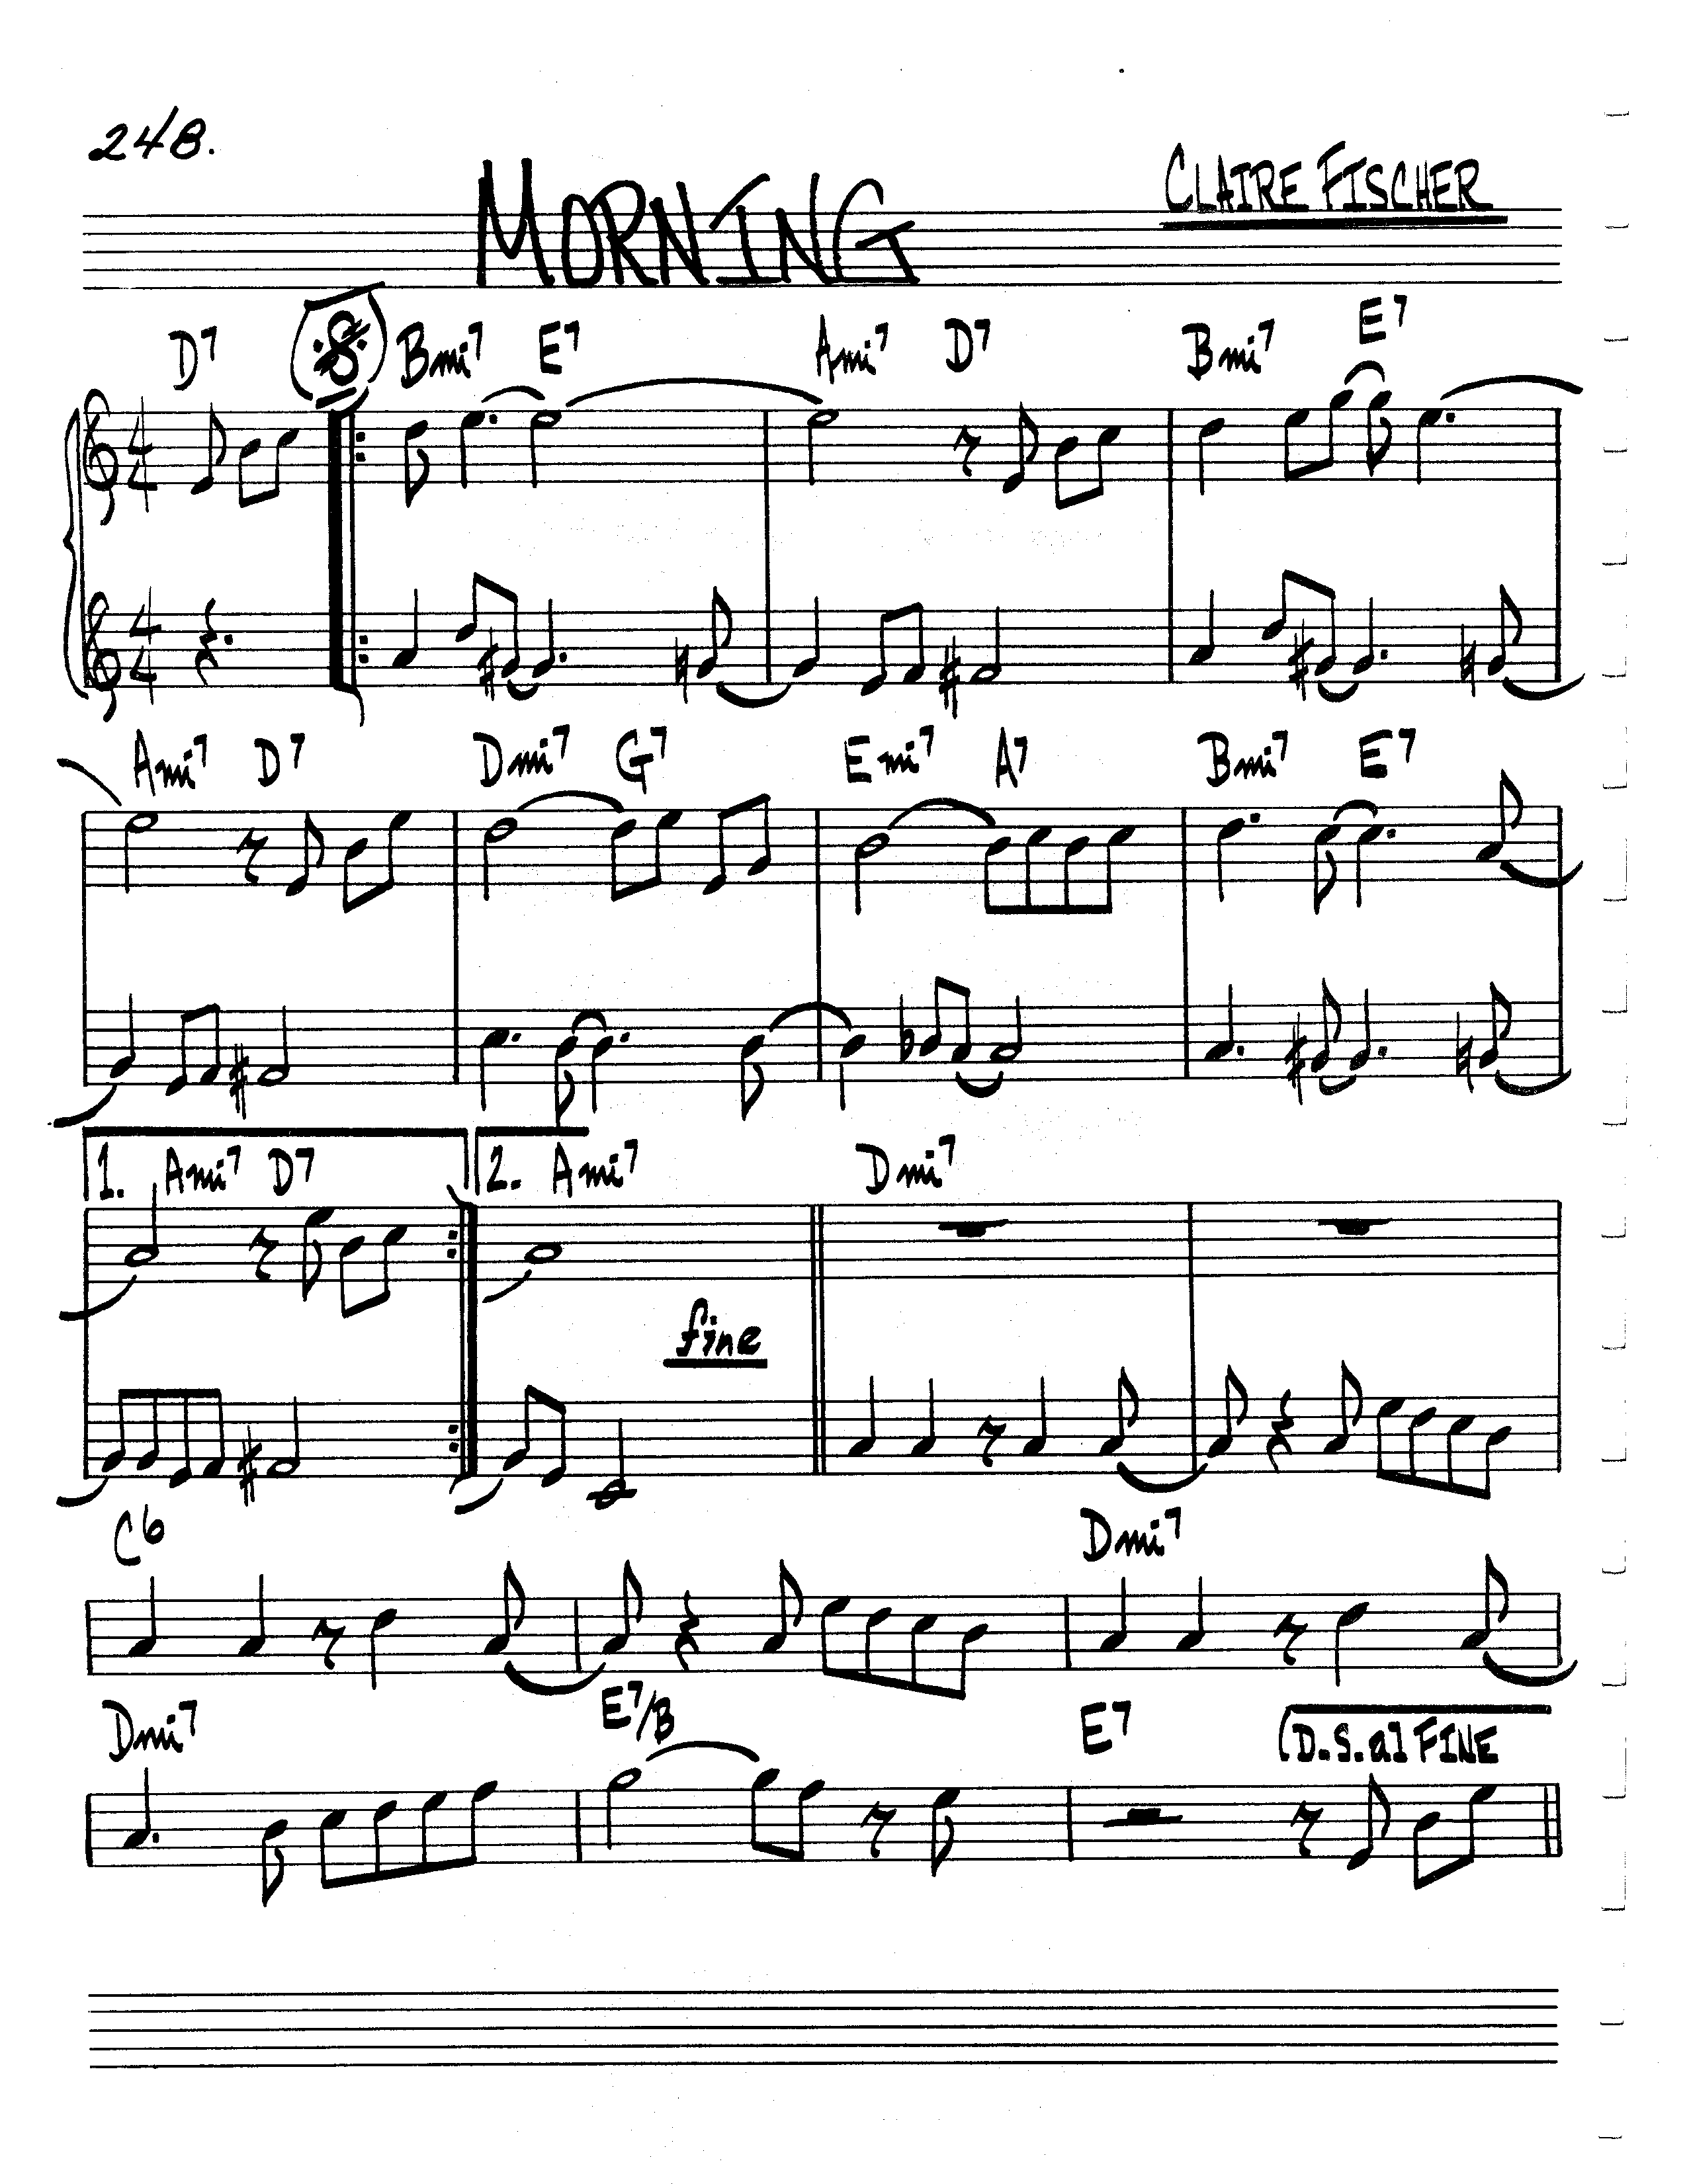 248.
MORNING
CLAIRE FISCHER
D7 Bmi7 E7 Ami7 D7 Bmi7 E7
4 4
4 4
Ami7 D7 Dmi7 G7 Emi7 A7 Bmi7 E7
1. Ami7 D7 2. Ami7 Dmi7
fine
C6 Dmi7
Dmi7 E7/B E7 (D.S. al FINE